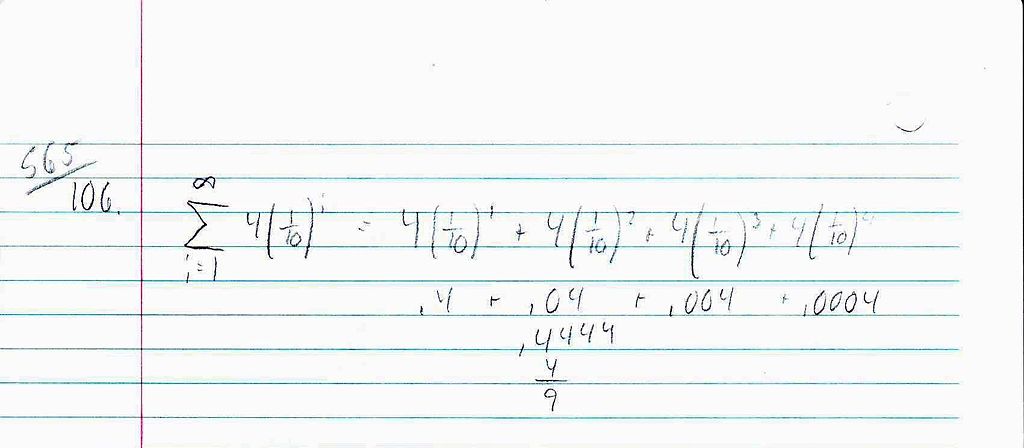 565/106.
∞
∑ 4(1/10)^i = 4(1/10)^1 + 4(1/10)^2 + 4(1/10)^3 + 4(1/10)^4
i=1
.4 + .04 + .004 + .0004
.4444
4/9